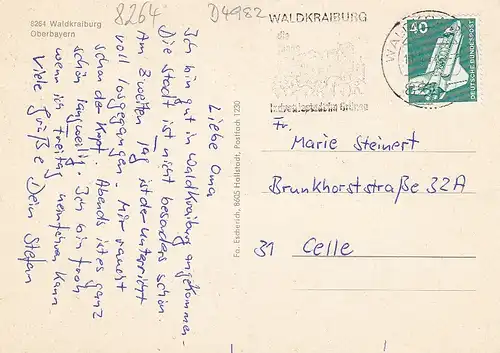 8264 Waldkraiburg
Oberbayern
8264
D4982
WALDKRAIBURG
die
Industriestadt im Grünen
40
DEUTSCHE BUNDESPOST
Liebe Oma
Ich bin gut in Waldkraiburg angekommen.
Die Stadt ist nicht besonders schön.
Am zweiten Tag ist der Unterricht
voll losgegangen. Mir raucht
schon der Kopf. Abends ist es ganz
schön langweilig. Ich bin froh
wenn ich Freitag heimfahren kann
Viele Grüße Dein Stefan
Fa. Escherich, 8605 Hallstadt, Postfach 1230
Fr.
Marie Steinert
Brunkhorststraße 32A
31 Celle